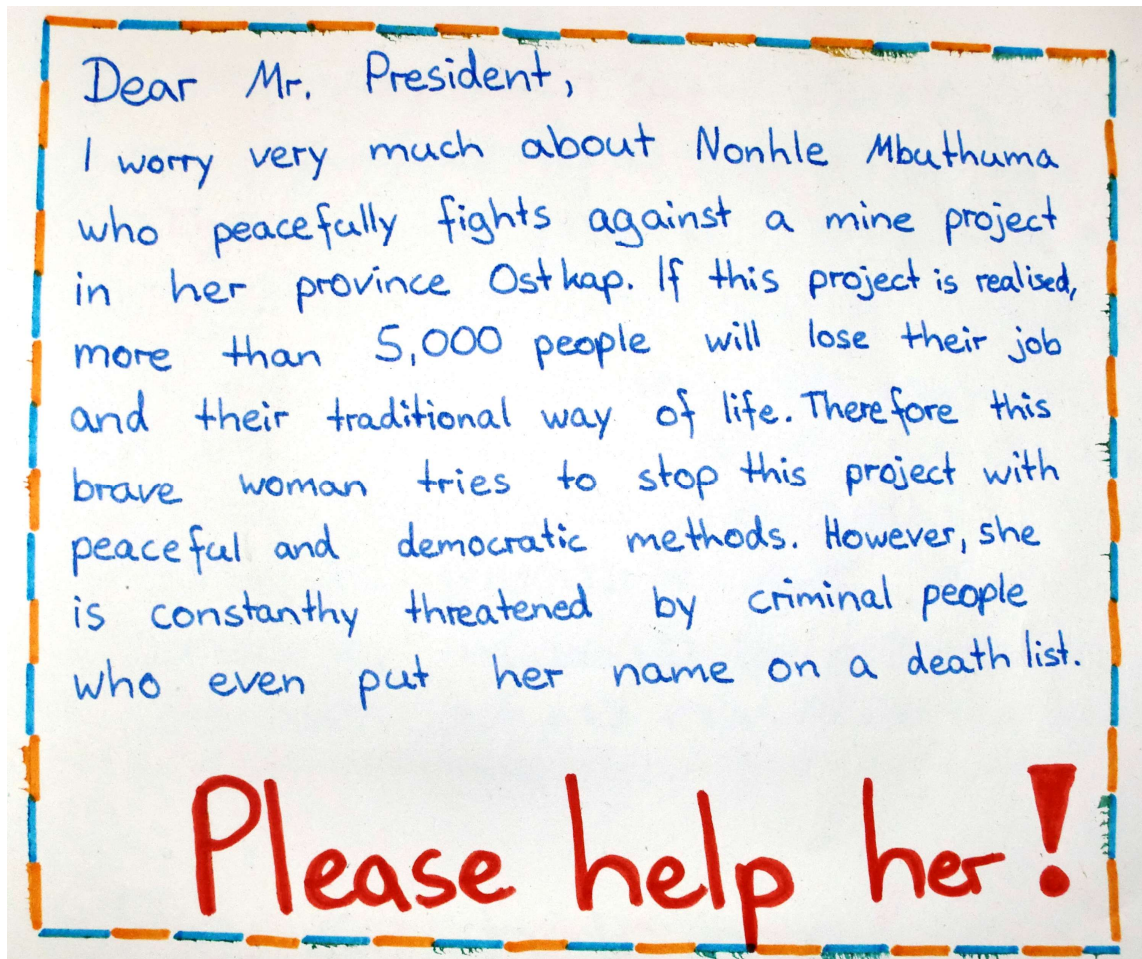 Dear Mr. President,
I worry very much about Nonhle Mbuthuma
who peacefully fights against a mine project
in her province Ostkap. If this project is realised,
more than 5,000 people will lose their job
and their traditional way of life. Therefore this
brave woman tries to stop this project with
peaceful and democratic methods. However, she
is constanthy threatened by criminal people
who even put her name on a death list.
Please help her!